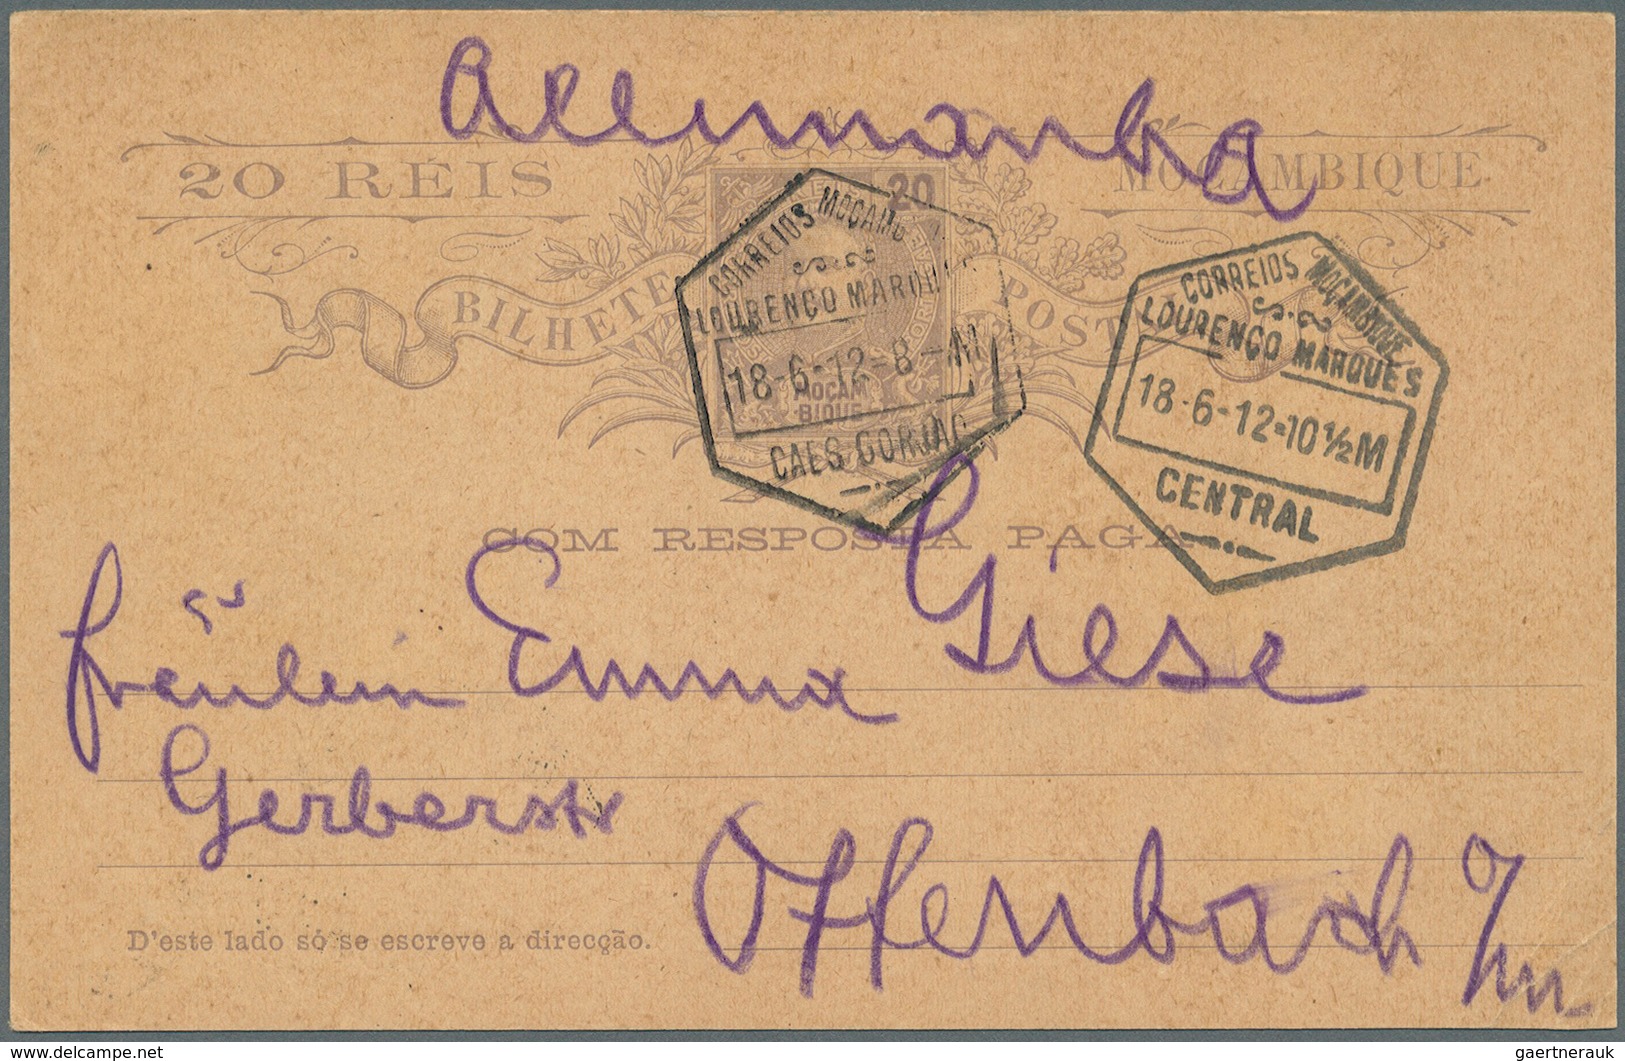 Allemanha
20 RÉIS
MOÇAMBIQUE
20
BILHETE POST
MOÇAM
BIQUE
CORREIOS MOÇAMB
LOURENÇO MARQU
18-6-12=8-M
CAES GORJÃO
CORREIOS MOÇAMBIQUE
LOURENÇO MARQUES
18-6-12=10½M
CENTRAL
COM RESPOSTA PAGA
Fräulein Emma Giese
Gerberstr
Offenbach a/m
D'este lado só se escreve a direcção.
delcampe.net
gaertnerauk